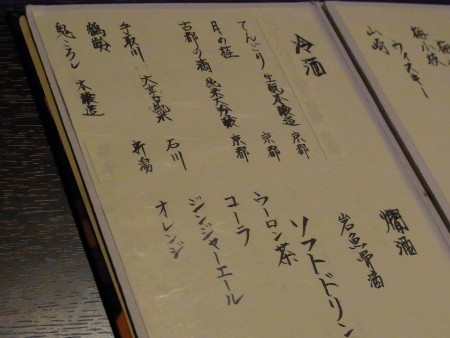 ウィスキー
山崎
冷酒
生酛本醸造 京都
月の桂 純米大吟醸 京都
古都の酒
手取川 石川
鶴齢 新潟
鬼ころし 本醸造
燗酒
岩魚骨酒
ソフトドリン
ウーロン茶
コーラ
ジンジャーエール
オレンジ